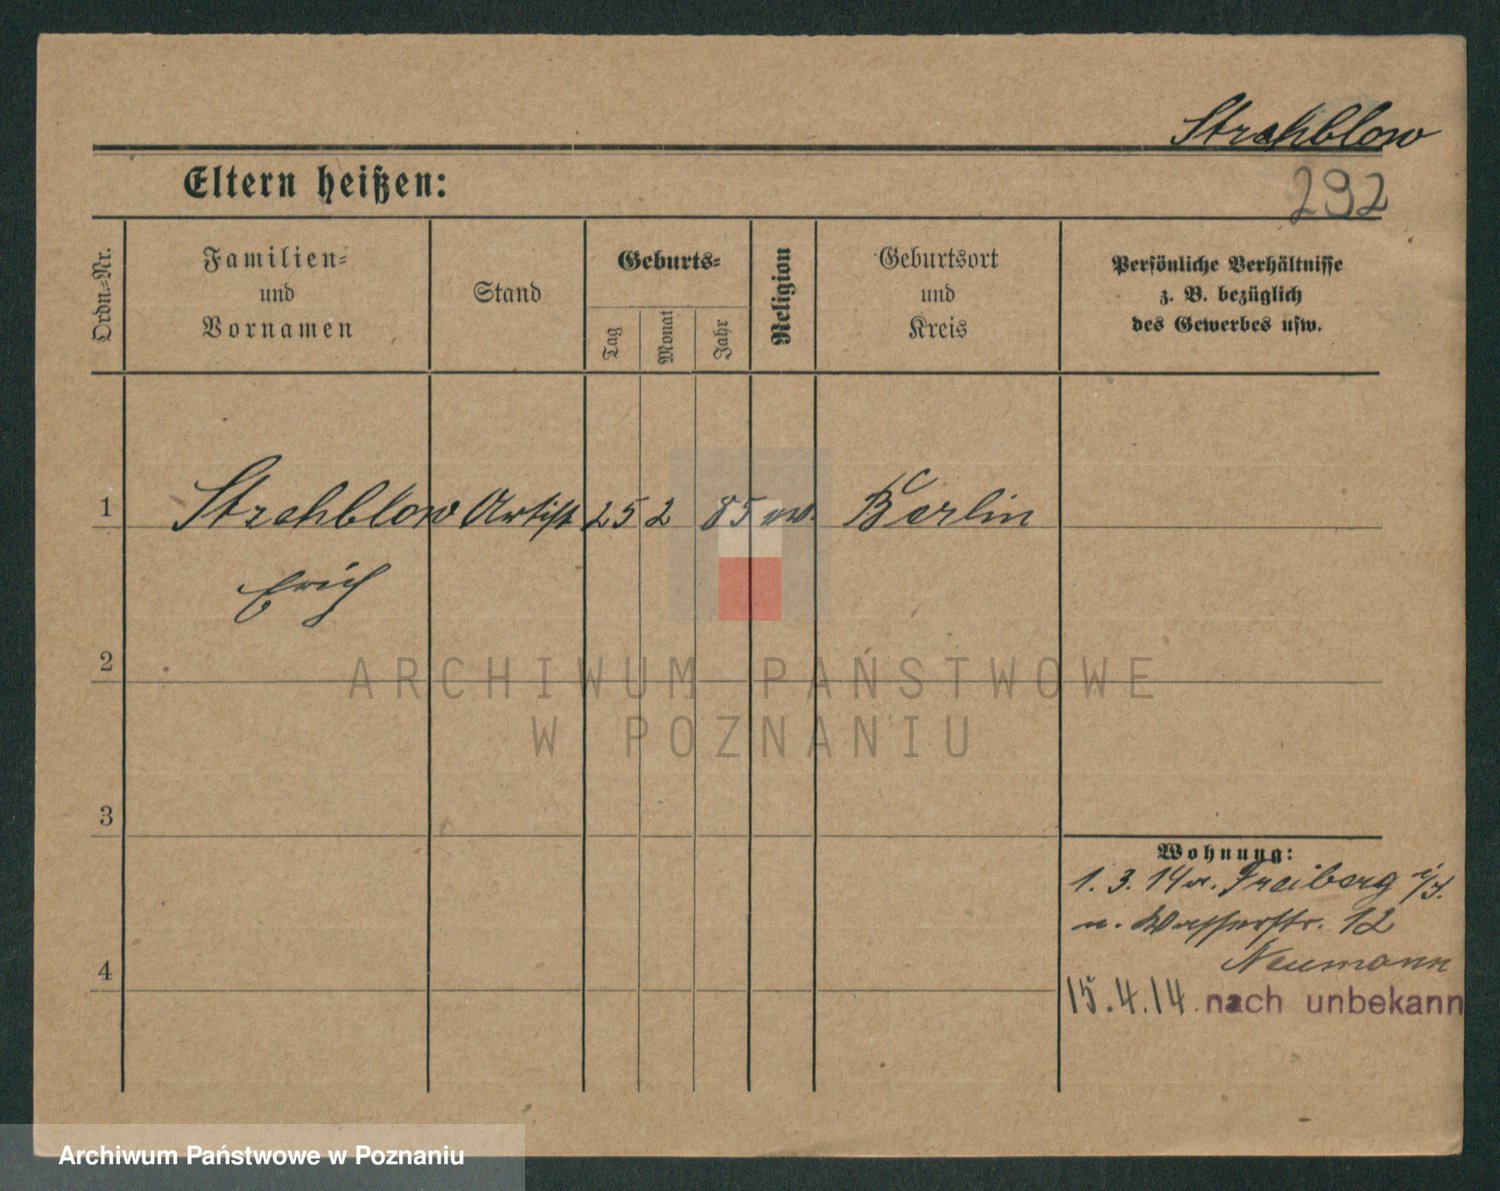 Strehblow
Eltern heißen:
292
Ordn.-Nr.
Familien-
und
Vornamen
Stand
Geburts-
Tag
Monat
Jahr
Religion
Geburtsort
und
Kreis
Persönliche Verhältnisse
z. B. bezüglich
des Gewerbes usw.
1 Strehblow Artist 25 2 85 ev. Berlin
Erich
2
ARCHIWUM PAŃSTWOWE
W POZNANIU
3
Wohnung:
1. 3. 14 v. Freiberg i/S.
n. Wasserstr. 12
Neumann
4
15.4.14. nach unbekann
Archiwum Państwowe w Poznaniu